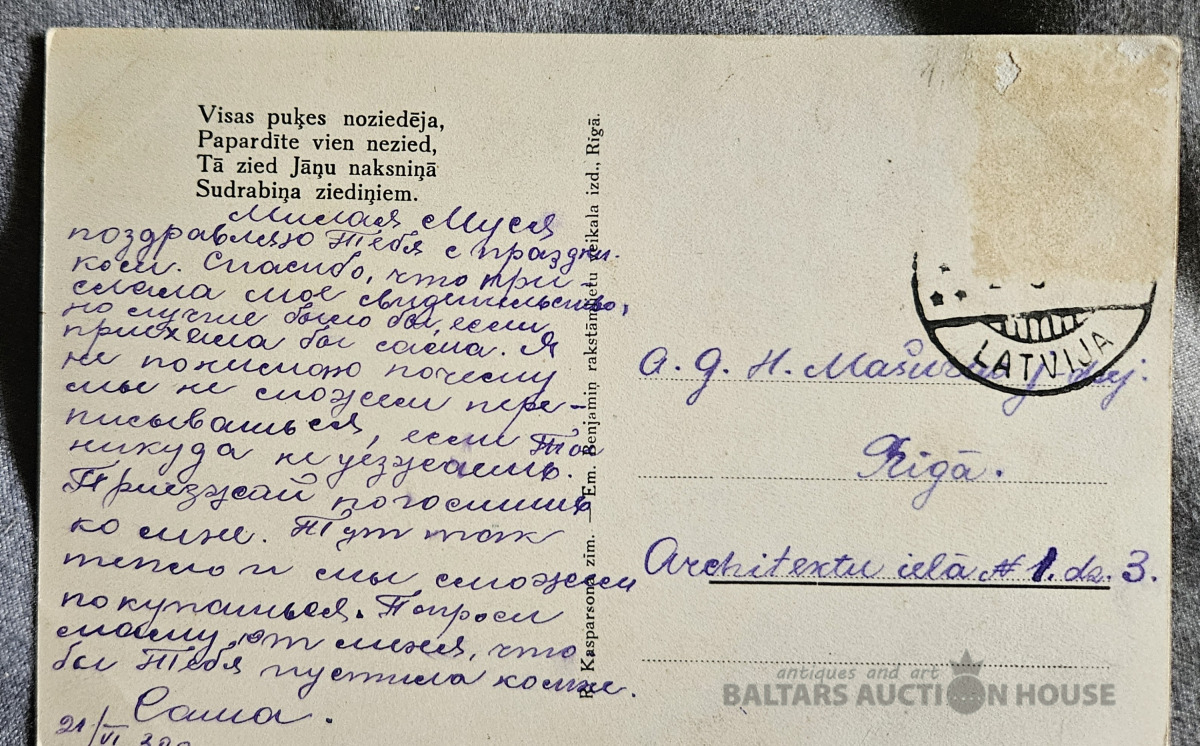 Visas puķes noziedēja,
Papardīte vien nezied,
Tā zied Jāņu naksniņā
Sudrabiņa ziediņiem.
Милая Муся
поздравляю Тебя с праздни-
ком. Спасибо, что при-
слала мое свидетельство,
но лучше было бы, если
приехала бы сама. Я
не понимаю почему
мы не можем пере-
писываться, если Ты
никуда не уезжаешь.
Приезжай погостить
ко мне. Тут так
тепло и мы сможем
покупаться. Попроси
маму, от меня, что
бы Тебя пустила ко мне.
Саша.
21/VI
R. Kasparsona zīm. — Em. Benjamiņ rakstāmlietu veikala izd., Rīgā.
LATVIJA
A. g. H.
Rigā.
Architektu ielā № 1. dz. 3.
antiques and art
BALTARS AUCTION HOUSE